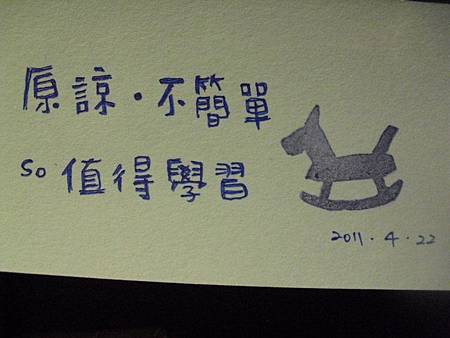 原諒·不簡單
so 值得學習
2011.4.22